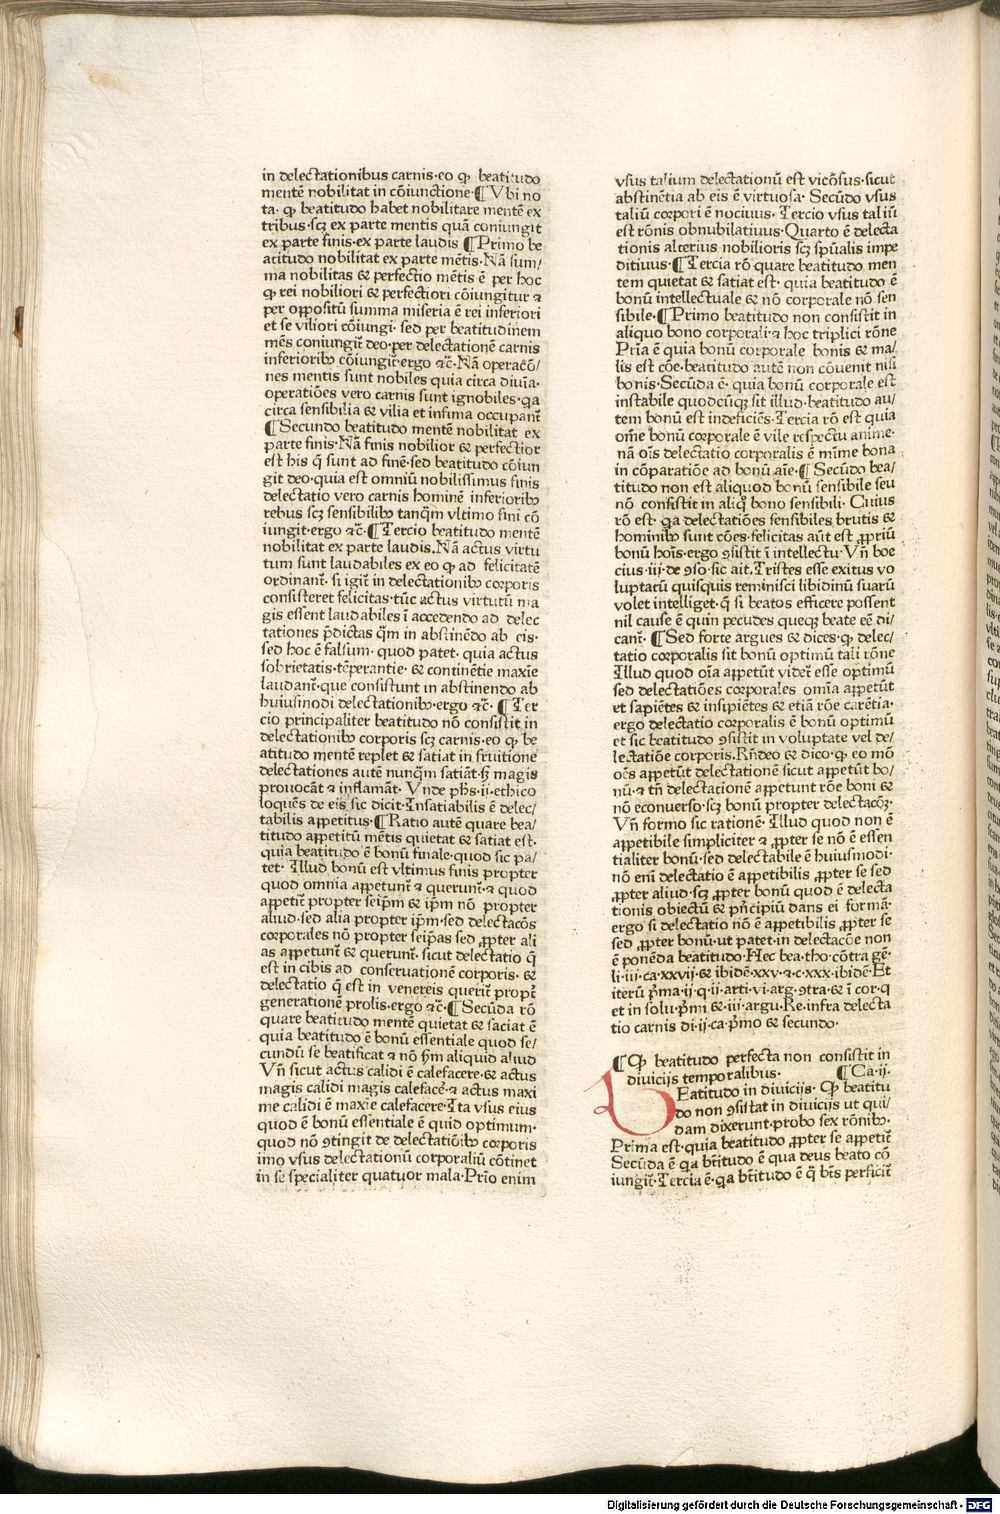 in delectationibus carnis·eo ꝙ beatitudo
mentē nobilitat in cōiunctione·¶Vbi no
ta· ꝙ beatitudo habet nobilitare mentē ex
tribus·scꝫ ex parte mentis quā coniungit
ex parte finis·ex parte laudis ¶Primo be
atitudo nobilitat ex parte mētis·Nā sum/
ma nobilitas ⁊ perfectio mētis ē per hoc
ꝙ rei nobiliori ⁊ perfectiori cōiungitur ⁊
per oppositū summa miseria ē rei inferiori
et se viliori cōiungi· sed per beatitudinem
mēs coniungit᷑ deo·per delectationē carnis
inferioribꝰ cōiungit᷑·ergo ⁊c̄·Nā operacō/
nes mentis sunt nobiles quia circa diuīa·
operatiōes vero carnis sunt ignobiles·qa
circa sensibilia ⁊ vilia et infima occupant᷑
¶Secundo beatitudo mentē nobilitat ex
parte finis·Nā finis nobilior ⁊ perfectior
est his q̄ sunt ad finē·sed beatitudo cōiun
git deo·quia est omniū nobilissimus finis
delectatio vero carnis hominē inferioribꝰ
rebus scꝫ sensibilibꝰ tanq̄m vltimo fini cō
iungit·ergo ⁊c̄·¶Tercio beatitudo mentē
nobilitat ex parte laudis.Nā actus virtu
tum sunt laudabiles ex eo ꝙ ad felicitatē
ordinant᷑· si igit᷑ in delectationibꝰ corporis
consisteret felicitas·tūc actus virtutū ma
gis essent laudabiles ī accedendo ad delec
tationes p̄dictas q̄m in abstinēdo ab eis·
sed hoc ē falsum· quod patet· quia actus
sobrietatis·tēperantie· ⁊ continētie maxīe
laudant᷑·que consistunt in abstinendo ab
huiusmodi delectationibꝰ·ergo ⁊c̄· ¶Ter
cio principaliter beatitudo nō consistit in
delectationibꝰ corporis scꝫ carnis·eo ꝙ be
atitudo mentē replet ⁊ satiat in fruitione
delectationes autē nunq̄m satiāt·sꝫ magis
prouocāt ⁊ inflamāt· Vnde pħs·ij·ethico
loquēs de eis sic dicit·Insatiabilis ē delec/
tabilis appetitus·¶Ratio autē quare bea/
titudo appetitū mētis quietat ⁊ satiat est·
quia beatitudo ē bonū finale·quod sic pa/
tet· Illud bonū est vltimus finis propter
quod omnia appetunt᷑ ⁊ querunt᷑·⁊ quod
appetit᷑ propter seip̄m ⁊ ip̄m nō propter
aliud·sed alia propter ip̄m·sed delectacōs
corporales nō propter seip̄as sed ꝓpter ali
as appetunt᷑ ⁊ querunt᷑· sicut delectatio q̄
est in cibis ad conseruationē corporis· ⁊
delectatio q̄ est in venereis querit᷑ propt᷑
generationē prolis·ergo ⁊c̄·¶Secūda rō
quare beatitudo mentē quietat ⁊ saciat ē
quia beatitudo ē bonū essentiale quod se/
cundū se beatificat ⁊ nō ẜm aliquid aliud
Vn̄ sicut actus calidi ē calefacere·⁊ actus
magis calidi magis calefacē·⁊ actus maxi
me calidi ē maxīe calefacere·Ita vsus eius
quod ē bonū essentiale ē quid optimum·
quod nō ꝯtingit de delectatiōibꝰ corporis
imo vsus delectationū corporaliū cōtinet
in se specialiter quatuor mala·Prīo enim
vsus talium delectationū est viciōsus·sicut
abstinētia ab eis ē virtuosa· Secūdo vsus
taliū corpori ē nociuus· Tercio vsus taliū
est rōnis obnubilatiuus·Quarto ē delecta
tionis alterius nobilioris scꝫ spūalis impe
ditiuus·¶Tercia rō quare beatitudo men
tem quietat ⁊ satiat est· quia beatitudo ē
bonū intellectuale ⁊ nō corporale nō sen
sibile·¶Primo beatitudo non consistit in
aliquo bono corporali·⁊ hoc triplici rōne
Prīa ē quia bonū corporale bonis ⁊ ma/
lis est cōe·beatitudo autē non cōuenit nisi
bonis·Secūda ē· quia bonū corporale est
instabile quodcūqꝫ sit illud·beatitudo au/
tem bonū est indeficiēs·Tercia rō est quia
om̄e bonū corporale ē vile respectu anime·
nā oīs delectatio corporalis ē mīme bona
in cōparatiōe ad bonū aīe·¶ Secūdo bea/
titudo non est aliquod bonū sensibile seu
nō consistit in aliqͦ bono sensibili· Cuius
rō est· qa delectatiōes sensibiles brutis ⁊
hominibꝰ sunt cōes·felicitas aūt est ꝓpriū
bonū hoīs·ergo ꝯsistit ī intellectu·Vn̄ boe
cius·iij·de ꝯso·sic ait.Tristes esse exitus vo
luptatū quisquis reminisci libidinū suarū
volet intelliget·q̄ si beatos efficere possent
nil cause ē quin pecudes queqꝫ beate eē di/
cant᷑· ¶Sed forte argues ⁊ dices·ꝙ delec/
tatio corporalis sit bonū optimū tali rōne
Illud quod oīa appetūt videt᷑ esse optimū
sed delectatiōes corporales omīa appetūt
et sapiētes ⁊ insipiētes ⁊ etiā rōe carētia·
ergo delectatio corporalis ē bonū optimū
et sic beatitudo ꝯsistit in voluptate vel de/
lectatiōe corporis.Rn̄deo ⁊ dico·ꝙ eo mō
oēs appetūt delectationē sicut appetūt bo/
nū·⁊ tn̄ delectationē appetunt rōe boni ⁊
nō econuerso·scꝫ bonū propter delectacōꝫ·
Vn̄ formo sic rationē· Illud quod non ē
appetibile simpliciter ⁊ ꝓpter se nō ē essen
tialiter bonū·sed delectabile ē huiusmodi·
nō em̄ delectatio ē appetibilis ꝓpter se sed
ꝓpter aliud·scꝫ ꝓpter bonū quod ē delecta
tionis obiectū ⁊ pn̄cipiū dans ei formā·
ergo si delectatio nō ē appetibilis ꝓpter se
sed ꝓpter bonū·ut patet·in delectacōe non
ē ponēda beatitudo·Hec bea·tho·cōtra gē·
li·iij·ca·xxvij·⁊ ibidē·xxv·⁊·c·xxx·ibidē·Et
iterū pͥma·ij·q·ij·arti·vi·arg·ꝯtra·⁊ ī cor·q
et in solu·pͥmi ⁊·iij·argu·Re·infra delecta
tio carnis di·ij·ca·pͥmo ⁊ secundo·
¶Qꝙ beatitudo perfecta non consistit in
diuicijs temporalibus· ¶Ca·ij·
BEatitudo in diuicijs· Qꝙ beatitu
do non ꝯsistat in diuicijs ut qui/
dam dixerunt·probo sex rōnibꝰ·
Prima est·quia beatitudo ꝓpter se appetit᷑
Secūda ē qa bt̄itudo ē qua deus beato cō
iungit᷑·Tercia ē·qa bt̄itudo ē q̄ bt̄s perficit᷑
Digitalisierung gefördert durch die Deutsche Forschungsgemeinschaft - DFG